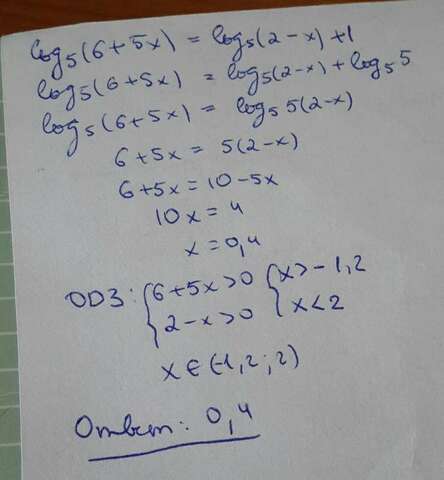 log₅(6+5x) = log₅(2-x)+1
log₅(6+5x) = log₅(2-x)+log₅5
log₅(6+5x) = log₅5(2-x)
6+5x = 5(2-x)
6+5x = 10-5x
10x = 4
x = 0,4
ОДЗ: {6+5x>0 {x>-1,2
{2-x>0 {x<2
x∈(-1,2;2)
Ответ: 0,4